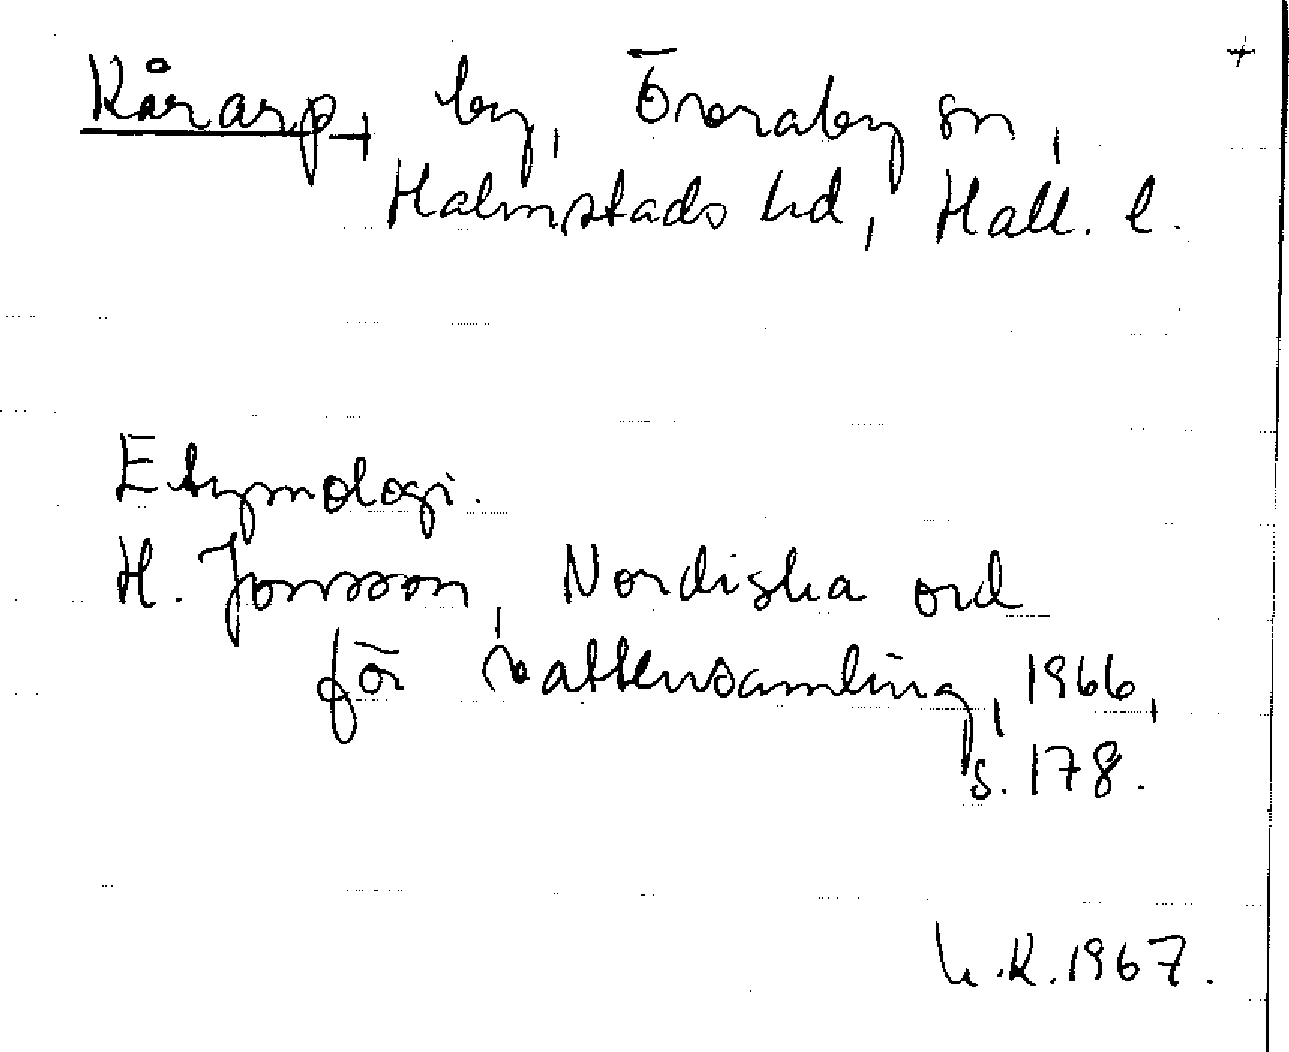 +
Kårarp, by, Övraby sn,
Halmstads hd, Hall. l.
Etymologi.
H. Jonsson, Nordiska ord
för vattensamling, 1966,
s. 178.
K.1967.